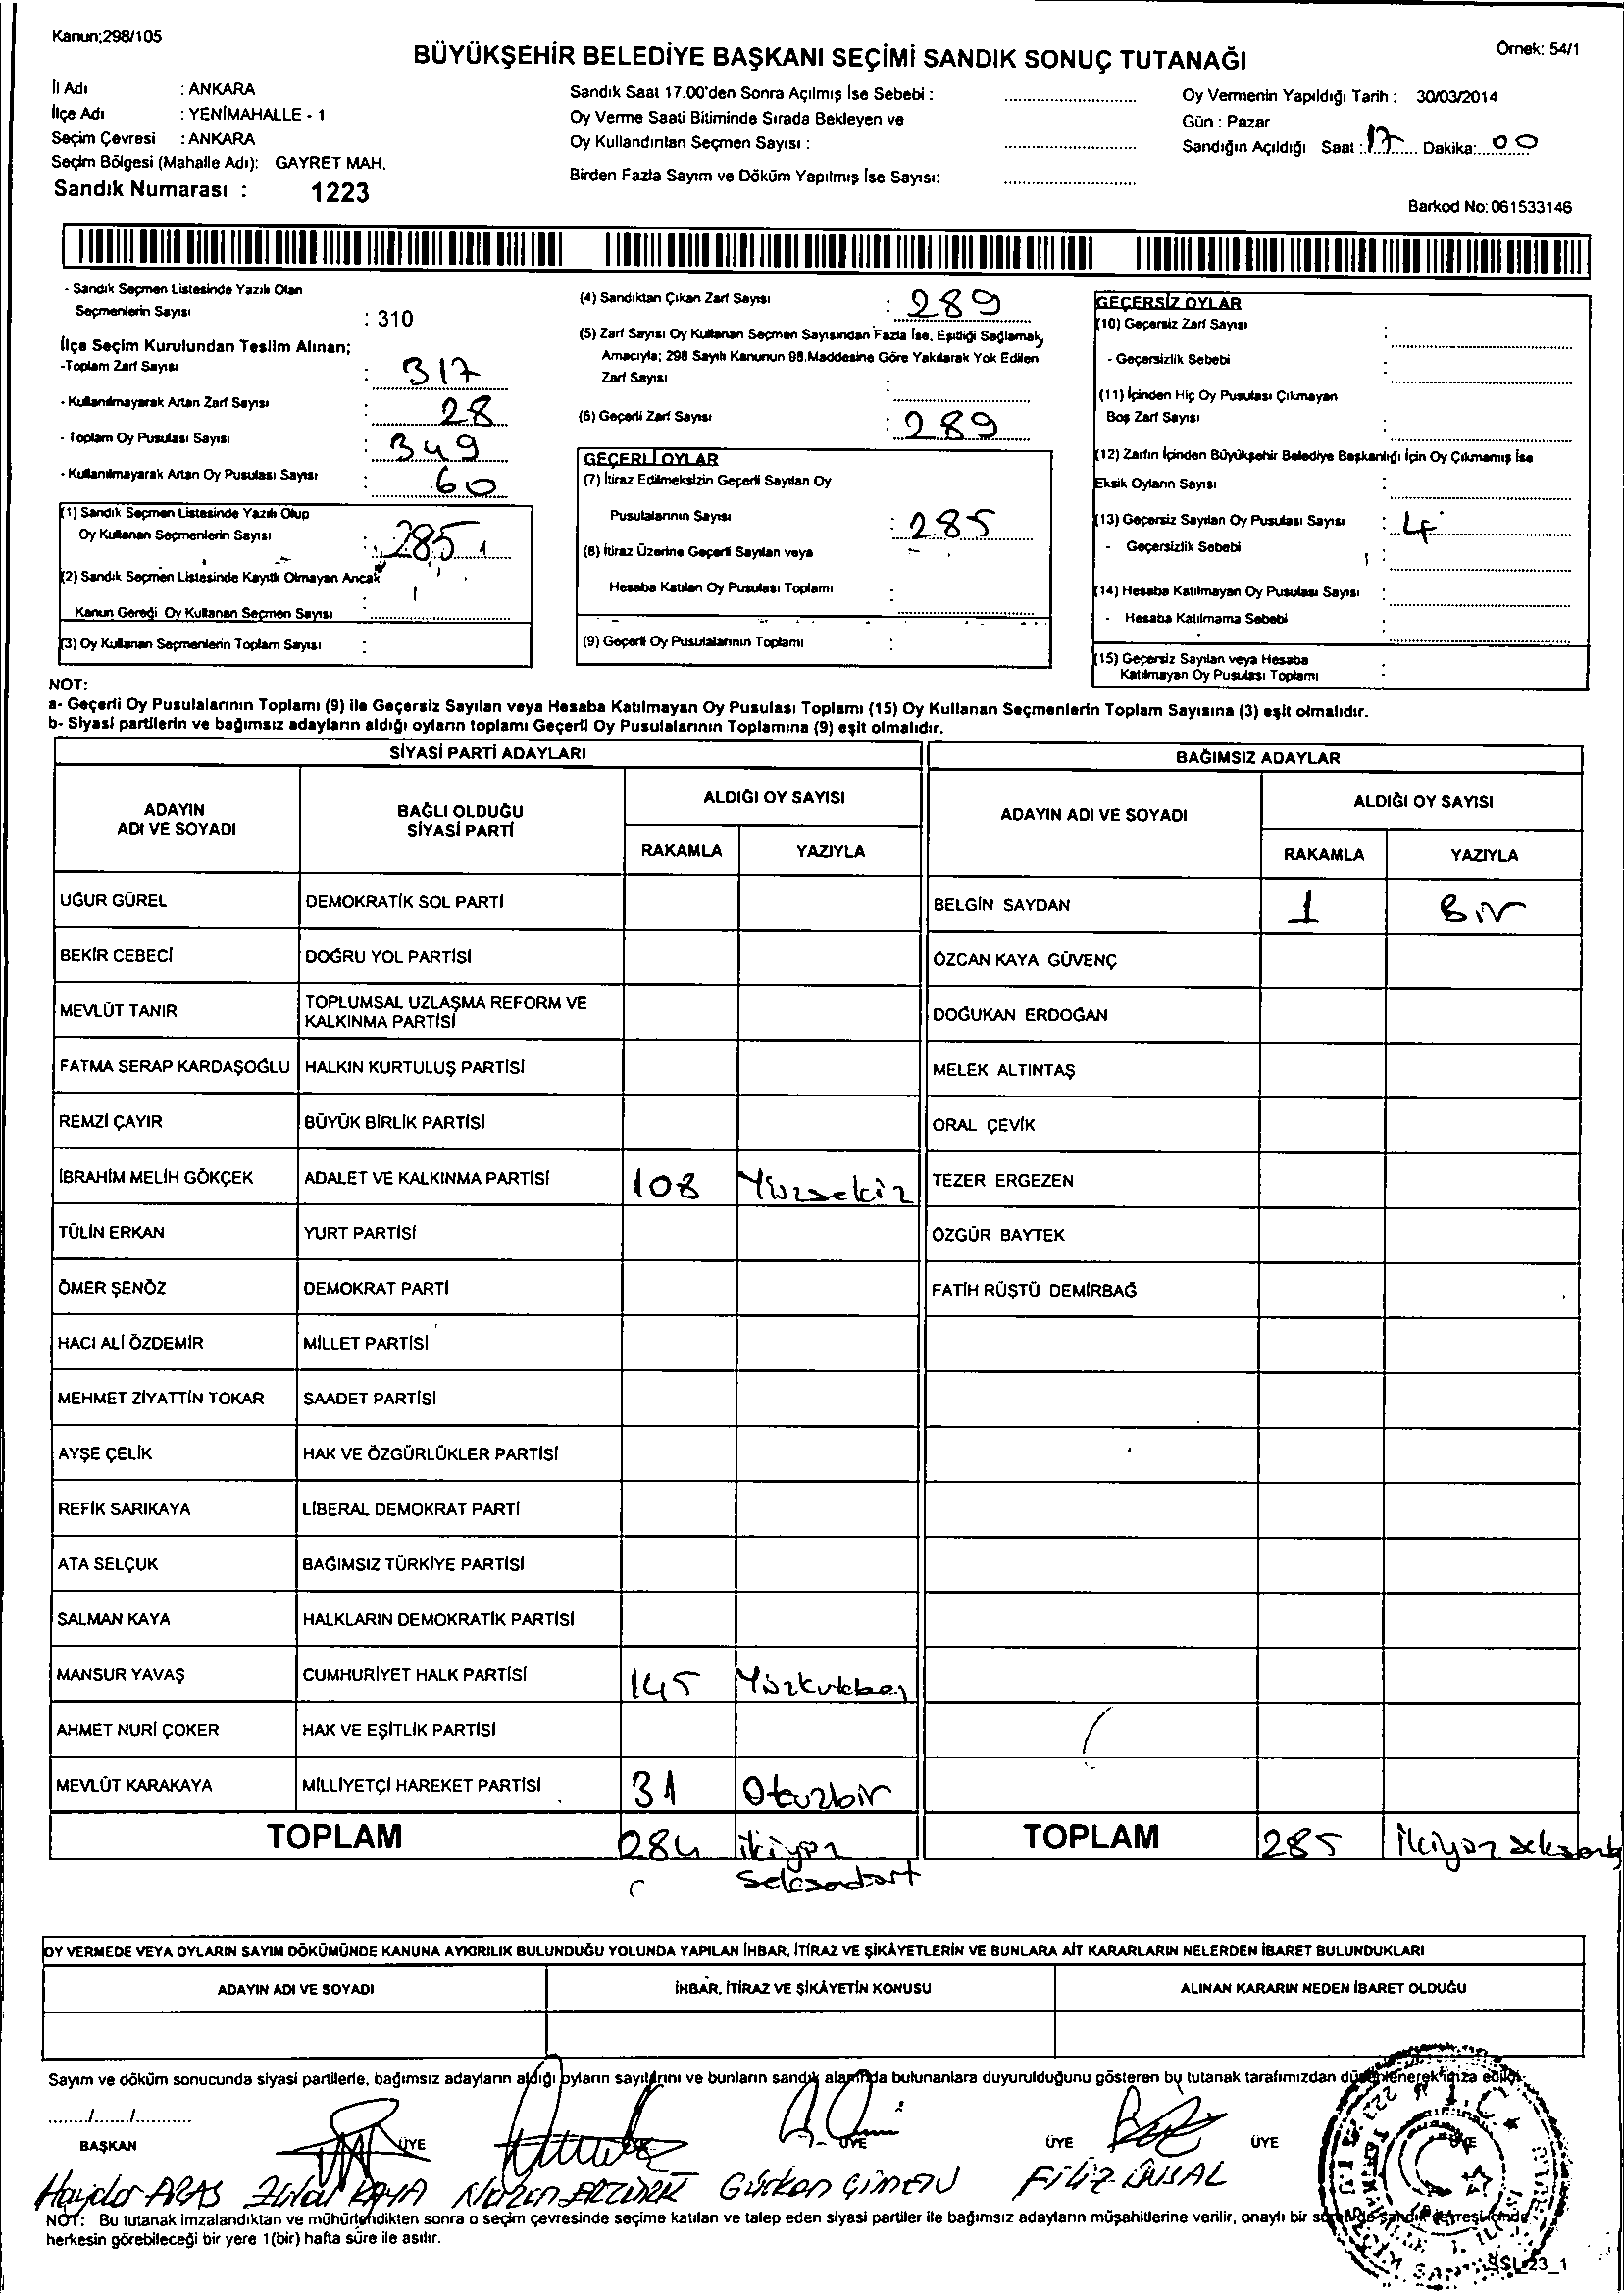 Kanun;298/105
Örnek: 54/1
BÜYÜKŞEHİR BELEDİYE BAŞKANI SEÇİMİ SANDIK SONUÇ TUTANAĞI
İl Adı : ANKARA
İlçe Adı : YENİMAHALLE - 1
Seçim Çevresi : ANKARA
Seçim Bölgesi (Mahalle Adı): GAYRET MAH.
Sandık Numarası : 1223
Sandık Saat 17.00'den Sonra Açılmış İse Sebebi :
Oy Verme Saati Bitiminde Sırada Bekleyen ve
Oy Kullandırılan Seçmen Sayısı :
Birden Fazla Sayım ve Döküm Yapılmış İse Sayısı:
Oy Vermenin Yapıldığı Tarih : 30/03/2014
Gün : Pazar
Sandığın Açıldığı Saat : 17 Dakika: 00
Barkod No: 061533146
- Sandık Seçmen Listesinde Yazılı Olan
Seçmenlerin Sayısı : 310
İlçe Seçim Kurulundan Teslim Alınan;
-Toplam Zarf Sayısı : 317
- Kullanılmayarak Artan Zarf Sayısı : 28
- Toplam Oy Pusulası Sayısı : 349
- Kullanılmayarak Artan Oy Pusulası Sayısı : 60
(1) Sandık Seçmen Listesinde Yazılı Olup
Oy Kullanan Seçmenlerin Sayısı : 285
(2) Sandık Seçmen Listesinde Kayıtlı Olmayan Ancak
Kanun Gereği Oy Kullanan Seçmen Sayısı :
(3) Oy Kullanan Seçmenlerin Toplam Sayısı :
(4) Sandıktan Çıkan Zarf Sayısı : 289
(5) Zarf Sayısı Oy Kullanan Seçmen Sayısından Fazla İse, Eşitliği Sağlamak
Amacıyla; 298 Sayılı Kanunun 98.Maddesine Göre Yakılarak Yok Edilen
Zarf Sayısı :
(6) Geçerli Zarf Sayısı : 289
GEÇERLİ OYLAR
(7) İtiraz Edilmeksizin Geçerli Sayılan Oy
Pusulalarının Sayısı : 285
(8) İtiraz Üzerine Geçerli Sayılan veya
Hesaba Katılan Oy Pusulası Toplamı :
(9) Geçerli Oy Pusulalarının Toplamı :
GEÇERSİZ OYLAR
(10) Geçersiz Zarf Sayısı :
- Geçersizlik Sebebi :
(11) İçinden Hiç Oy Pusulası Çıkmayan
Boş Zarf Sayısı :
(12) Zarfın İçinden Büyükşehir Belediye Başkanlığı İçin Oy Çıkmamış İse
Eksik Oyların Sayısı :
(13) Geçersiz Sayılan Oy Pusulası Sayısı : 4
- Geçersizlik Sebebi :
(14) Hesaba Katılmayan Oy Pusulası Sayısı :
- Hesaba Katılmama Sebebi :
(15) Geçersiz Sayılan veya Hesaba
Katılmayan Oy Pusulası Toplamı :
NOT:
a- Geçerli Oy Pusulalarının Toplamı (9) ile Geçersiz Sayılan veya Hesaba Katılmayan Oy Pusulası Toplamı (15) Oy Kullanan Seçmenlerin Toplam Sayısına (3) eşit olmalıdır.
b- Siyasi partilerin ve bağımsız adayların aldığı oyların toplamı Geçerli Oy Pusulalarının Toplamına (9) eşit olmalıdır.
SİYASİ PARTİ ADAYLARI
BAĞIMSIZ ADAYLAR
ADAYIN ADI VE SOYADI
BAĞLI OLDUĞU SİYASİ PARTİ
ALDIĞI OY SAYISI
RAKAMLA YAZIYLA
ADAYIN ADI VE SOYADI
ALDIĞI OY SAYISI
RAKAMLA YAZIYLA
UĞUR GÜREL DEMOKRATİK SOL PARTİ BELGİN SAYDAN 1 Bir
BEKİR CEBECİ DOĞRU YOL PARTİSİ ÖZCAN KAYA GÜVENÇ
MEVLÜT TANIR TOPLUMSAL UZLAŞMA REFORM VE KALKINMA PARTİSİ DOĞUKAN ERDOĞAN
FATMA SERAP KARDAŞOĞLU HALKIN KURTULUŞ PARTİSİ MELEK ALTINTAŞ
REMZİ ÇAYIR BÜYÜK BİRLİK PARTİSİ ORAL ÇEVİK
İBRAHİM MELİH GÖKÇEK ADALET VE KALKINMA PARTİSİ 108 Yüzsekiz TEZER ERGEZEN
TÜLİN ERKAN YURT PARTİSİ ÖZGÜR BAYTEK
ÖMER ŞENÖZ DEMOKRAT PARTİ FATİH RÜŞTÜ DEMİRBAĞ
HACI ALİ ÖZDEMİR MİLLET PARTİSİ
MEHMET ZİYATTİN TOKAR SAADET PARTİSİ
AYŞE ÇELİK HAK VE ÖZGÜRLÜKLER PARTİSİ
REFİK SARIKAYA LİBERAL DEMOKRAT PARTİ
ATA SELÇUK BAĞIMSIZ TÜRKİYE PARTİSİ
SALMAN KAYA HALKLARIN DEMOKRATİK PARTİSİ
MANSUR YAVAŞ CUMHURİYET HALK PARTİSİ 145
AHMET NURİ ÇOKER HAK VE EŞİTLİK PARTİSİ
MEVLÜT KARAKAYA MİLLİYETÇİ HAREKET PARTİSİ 31 Otuzbir
TOPLAM 284 ikiyüz seksendört TOPLAM 285
OY VERMEDE VEYA OYLARIN SAYIM DÖKÜMÜNDE KANUNA AYKIRILIK BULUNDUĞU YOLUNDA YAPILAN İHBAR, İTİRAZ VE ŞİKÂYETLERİN VE BUNLARA AİT KARARLARIN NELERDEN İBARET BULUNDUKLARI
ADAYIN ADI VE SOYADI İHBAR, İTİRAZ VE ŞİKÂYETİN KONUSU ALINAN KARARIN NEDEN İBARET OLDUĞU
Sayım ve döküm sonucunda siyasi partilerle, bağımsız adayların aldığı oyların sayılarını ve bunların sandık alanında bulunanlara duyurulduğunu gösteren bu tutanak tarafımızdan düzenlenerek imza edildi.
....../....../............
BAŞKAN ÜYE ÜYE ÜYE ÜYE ÜYE
Haydar ARAS KAYA Gürkan ÇİMEN Filiz ÜNSAL
NOT: Bu tutanak imzalandıktan ve mühürlendikten sonra o seçim çevresinde seçime katılan ve talep eden siyasi partiler ile bağımsız adayların müşahitlerine verilir, onaylı bir sureti de sandık çevresi içinde
herkesin görebileceği bir yere 1(bir) hafta süre ile asılır.